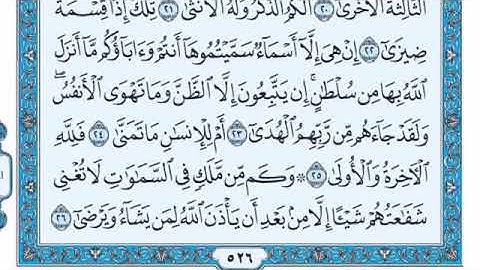 الثَّالِثَةَ الْأُخْرَىٰ ﴿٢٠﴾ أَلَكُمُ الذَّكَرُ وَلَهُ الْأُنثَىٰ ﴿٢١﴾ تِلْكَ إِذًا قِسْمَةٌ
ضِيزَىٰ ﴿٢٢﴾ إِنْ هِيَ إِلَّا أَسْمَاءٌ سَمَّيْتُمُوهَا أَنتُمْ وَءَابَاؤُكُم مَّا أَنزَلَ
اللَّهُ بِهَا مِن سُلْطَانٍ ۚ إِن يَتَّبِعُونَ إِلَّا الظَّنَّ وَمَا تَهْوَى الْأَنفُسُ ۖ
وَلَقَدْ جَاءَهُم مِّن رَّبِّهِمُ الْهُدَىٰ ﴿٢٣﴾ أَمْ لِلْإِنسَانِ مَا تَمَنَّىٰ ﴿٢٤﴾ فَلِلَّهِ
الْآخِرَةُ وَالْأُولَىٰ ﴿٢٥﴾ ۞ وَكَم مِّن مَّلَكٍ فِي السَّمَاوَاتِ لَا تُغْنِي
شَفَاعَتُهُمْ شَيْئًا إِلَّا مِن بَعْدِ أَن يَأْذَنَ اللَّهُ لِمَن يَشَاءُ وَيَرْضَىٰ ﴿٢٦﴾
٥٢٦